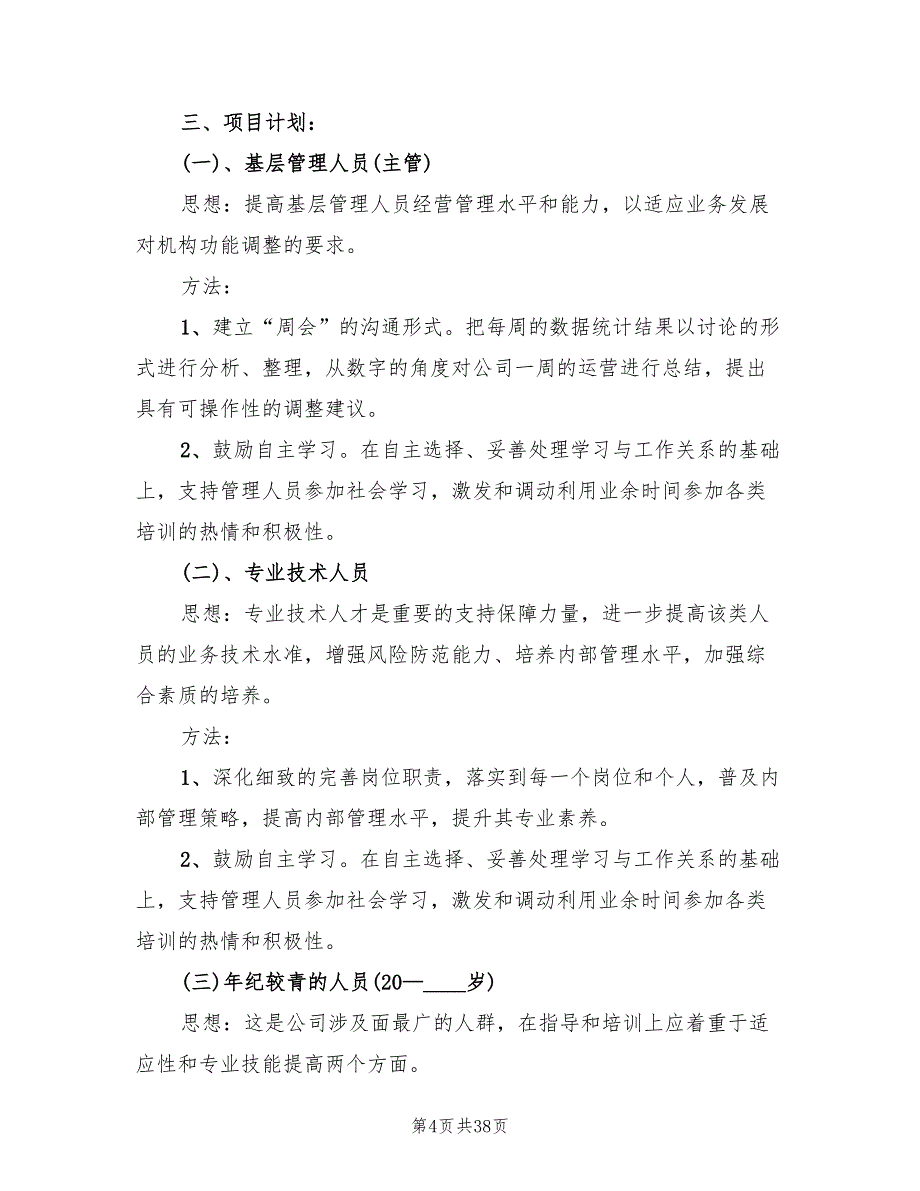 三、项目计划：
(一)、基层管理人员(主管)
思想：提高基层管理人员经营管理水平和能力，以适应业务发展
对机构功能调整的要求。
方法：
1、建立“周会”的沟通形式。把每周的数据统计结果以讨论的形
式进行分析、整理，从数字的角度对公司一周的运营进行总结，提出
具有可操作性的调整建议。
2、鼓励自主学习。在自主选择、妥善处理学习与工作关系的基础
上，支持管理人员参加社会学习，激发和调动利用业余时间参加各类
培训的热情和积极性。
(二)、专业技术人员
思想：专业技术人才是重要的支持保障力量，进一步提高该类人
员的业务技术水准，增强风险防范能力、培养内部管理水平，加强综
合素质的培养。
方法：
1、深化细致的完善岗位职责，落实到每一个岗位和个人，普及内
部管理策略，提高内部管理水平，提升其专业素养。
2、鼓励自主学习。在自主选择、妥善处理学习与工作关系的基础
上，支持管理人员参加社会学习，激发和调动利用业余时间参加各类
培训的热情和积极性。
(三)年纪较青的人员(20—____岁)
思想：这是公司涉及面最广的人群，在指导和培训上应着重于适
应性和专业技能提高两个方面。
第4页共38页